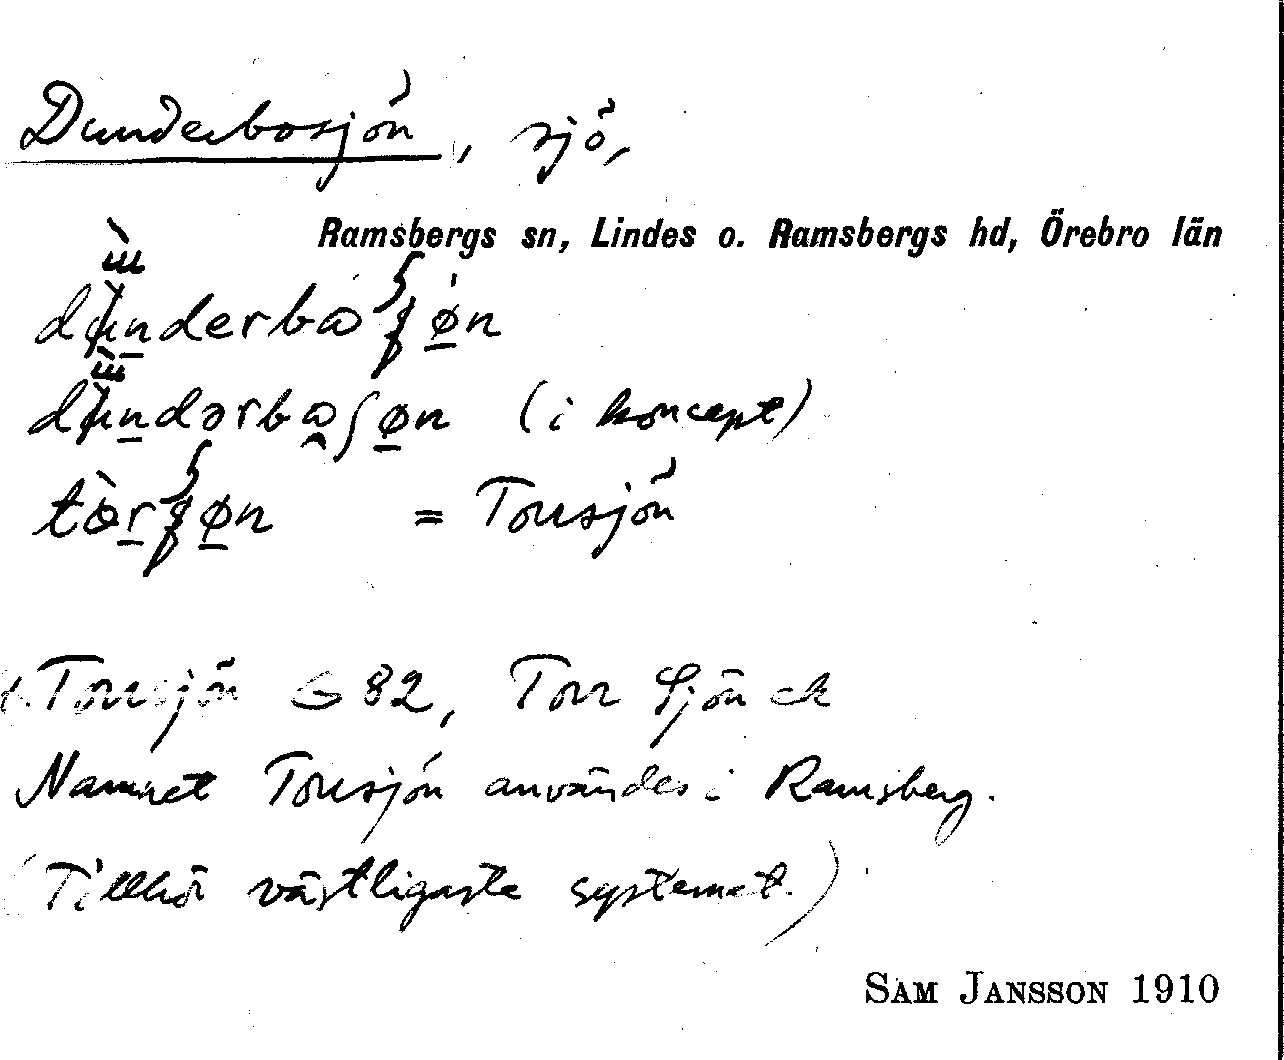 Dunderbosjön, sjö,
Ramsbergs sn, Lindes o. Ramsbergs hd, Örebro län
(i koncept)
= Torrsjön
Torrsjön G 82, Torr Sjön ek
Namnet Torrsjön användes i Ramsberg.
(Tillhör västligaste systemet.)
SAM JANSSON 1910